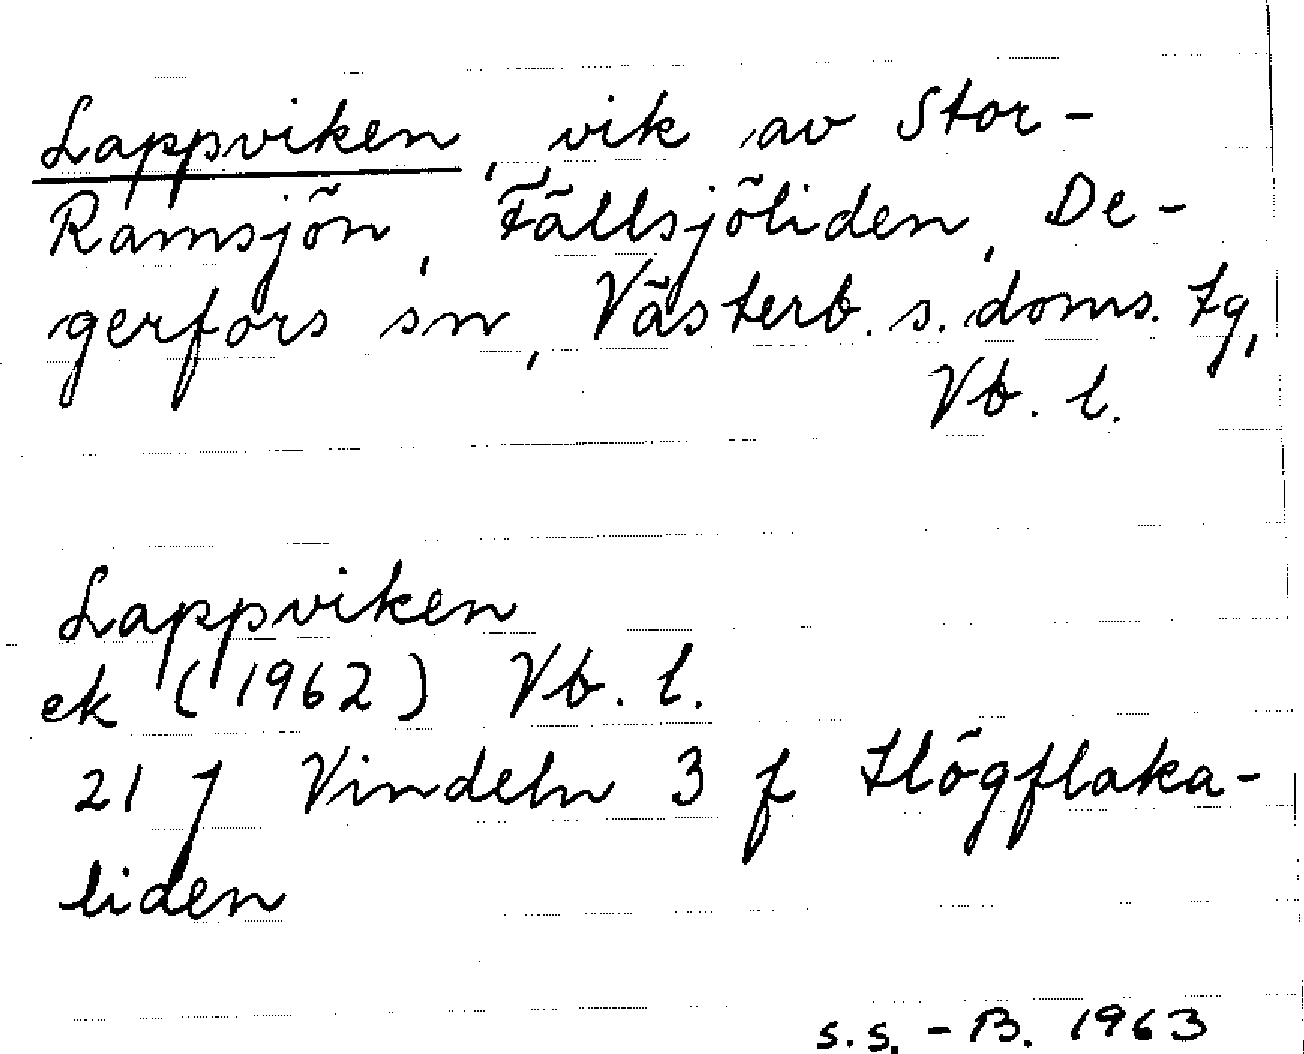 Lappviken, vik av Stor-
Ramsjön, Fällsjöliden, De-
gerfors sn, Västerb. s. doms. tg,
Vb. l.
Lappviken
ek (1962) Vb. l.
21 J Vindeln 3 f Högflaka-
liden
s.s. - B. 1963